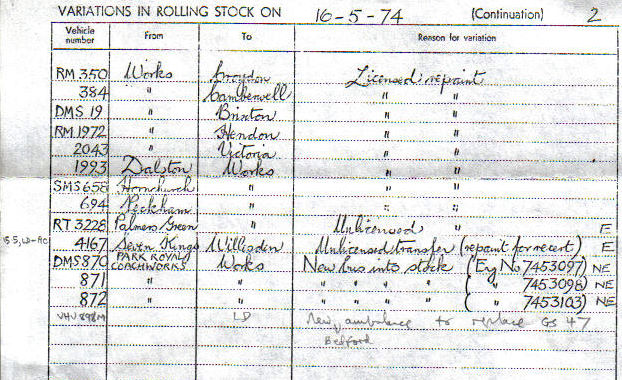 VARIATIONS IN ROLLING STOCK ON 16-5-74 (Continuation) 2
Vehicle number From To Reason for variation
RM 350 Works Croydon Licensed repaint
384 " Camberwell " "
DMS 19 " Brixton " "
RM 1972 " Hendon " "
2043 " Victoria " "
1993 Dalston Works " "
SMS 658 Hornchurch " " "
694 Peckham " " "
RT 3228 Palmers Green " Unlicensed " E
4167 Seven Kings Willesden Unlicensed transfer (repaint for recert) E
DMS 870 PARK ROYAL COACHWORKS Works New bus into stock (Eng No 7453097) NE
871 " " " " " " ( " 7453098) NE
872 " " " " " " ( " 7453103) NE
VHV 898M LD New ambulance to replace GS 47
Bedford